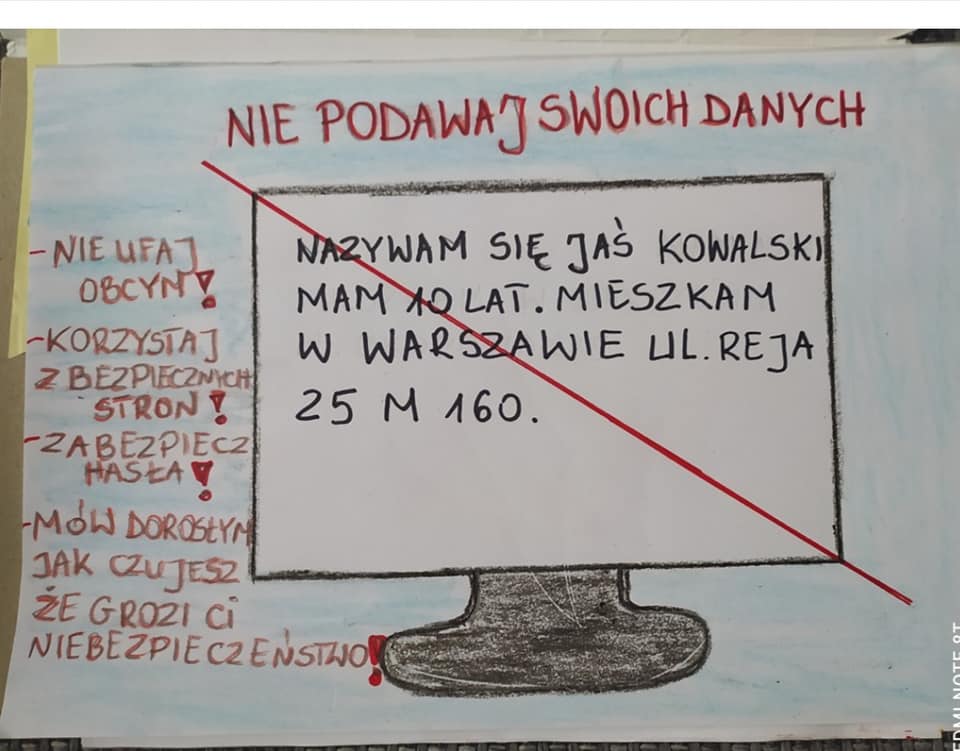 NIE PODAWAJ SWOICH DANYCH
- NIE UFAJ
OBCYM!
- KORZYSTAJ
Z BEZPIECZNYCH
STRON!
- ZABEZPIECZ
HASŁA!
- MÓW DOROSŁYM
JAK CZUJESZ
ŻE GROZI Ci
NIEBEZPIECZEŃSTWO!
NAZYWAM SIĘ JAŚ KOWALSKI
MAM 10 LAT. MIESZKAM
W WARSZAWIE UL. REJA
25 M 160.
NOTE 8T